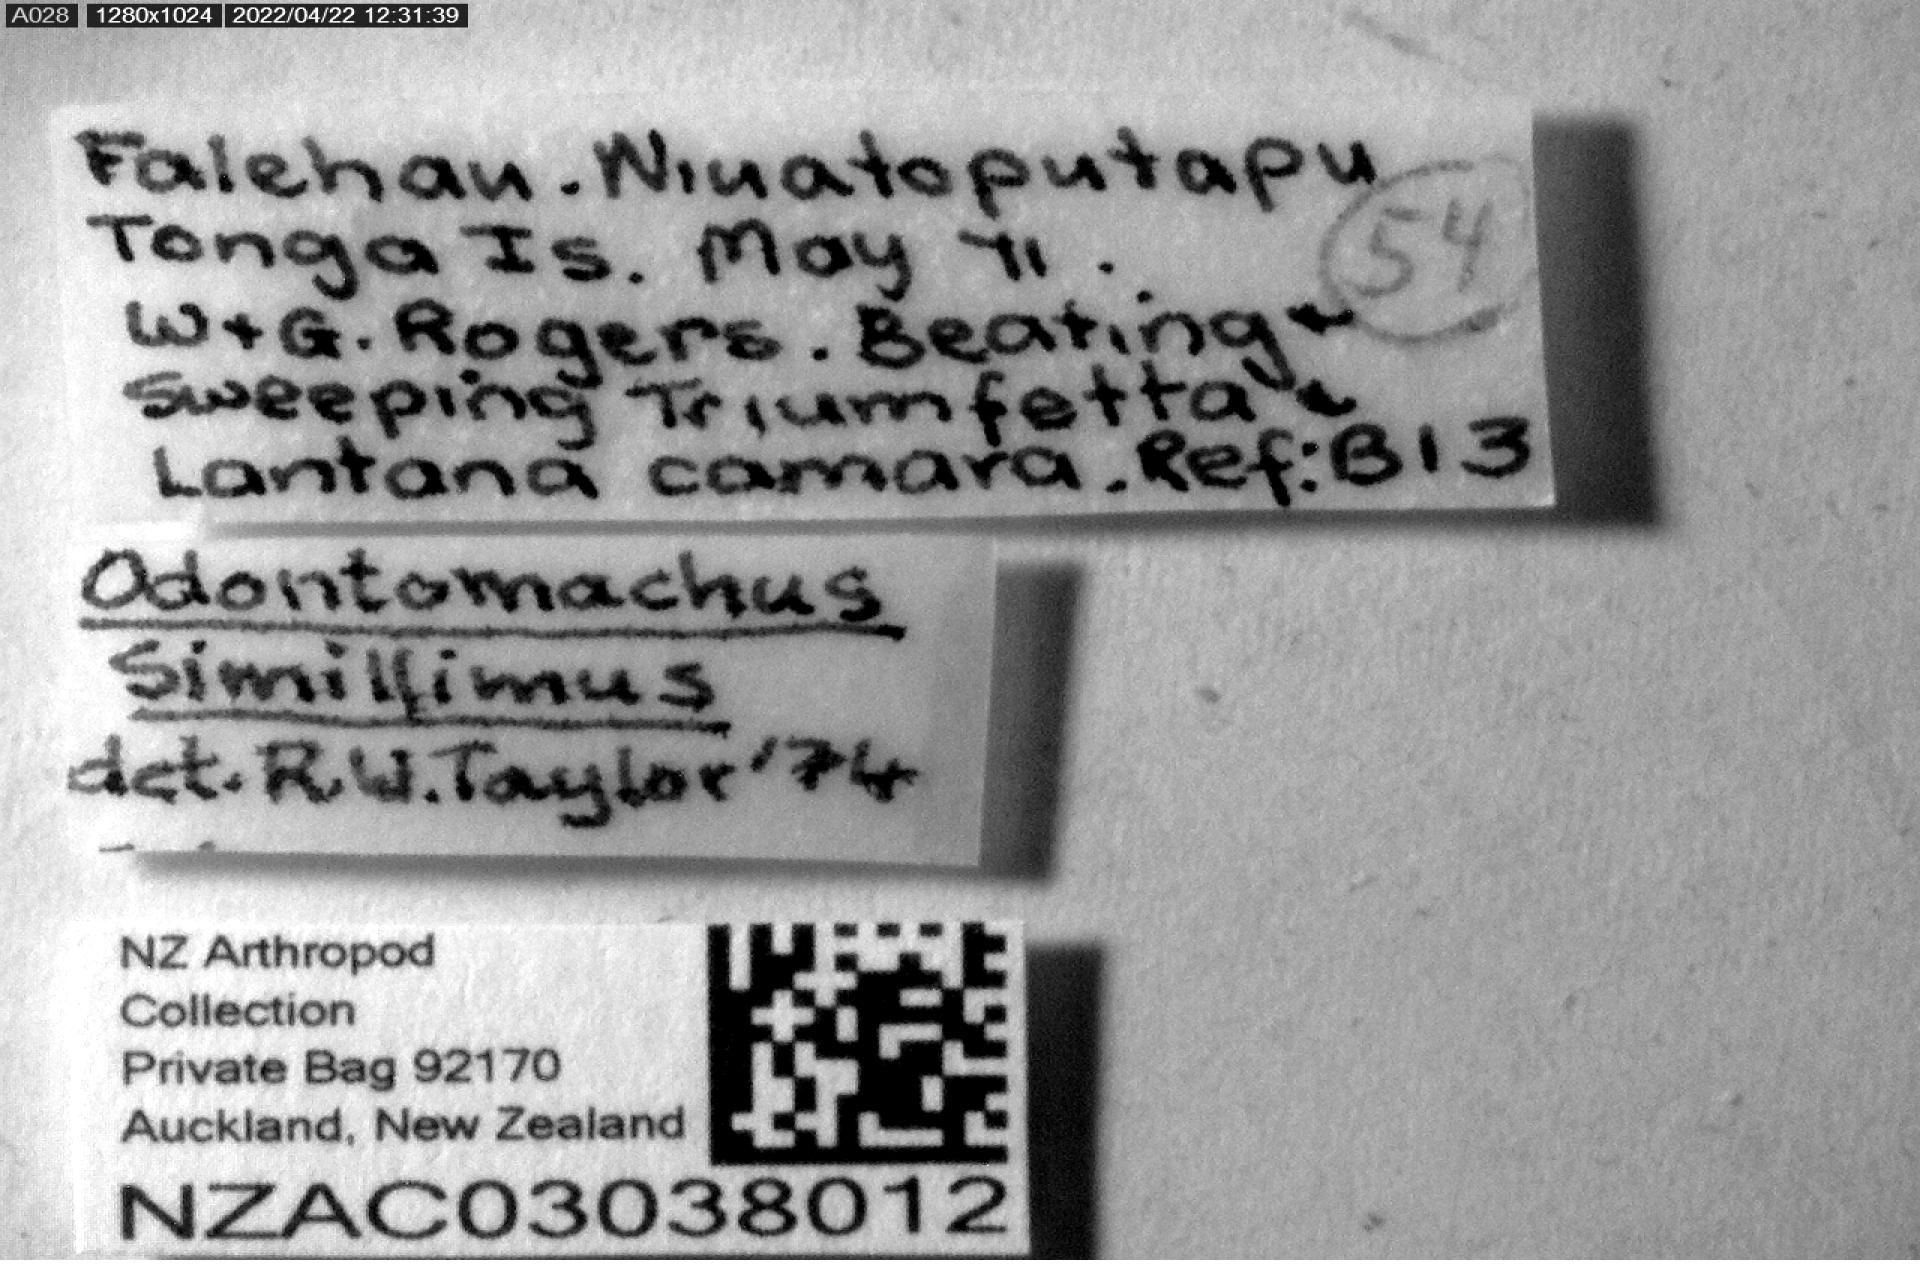 A028 1280x1024 2022/04/22 12:31:39
Falehau. Niuatoputapu
Tonga Is. May 71. 54
W+G. Rogers. Beating &
Sweeping Triumfetta &
Lantana camara. Ref: B13
Odontomachus
Simillimus
det. R.W. Taylor '74
NZ Arthropod
Collection
Private Bag 92170
Auckland, New Zealand
NZAC03038012